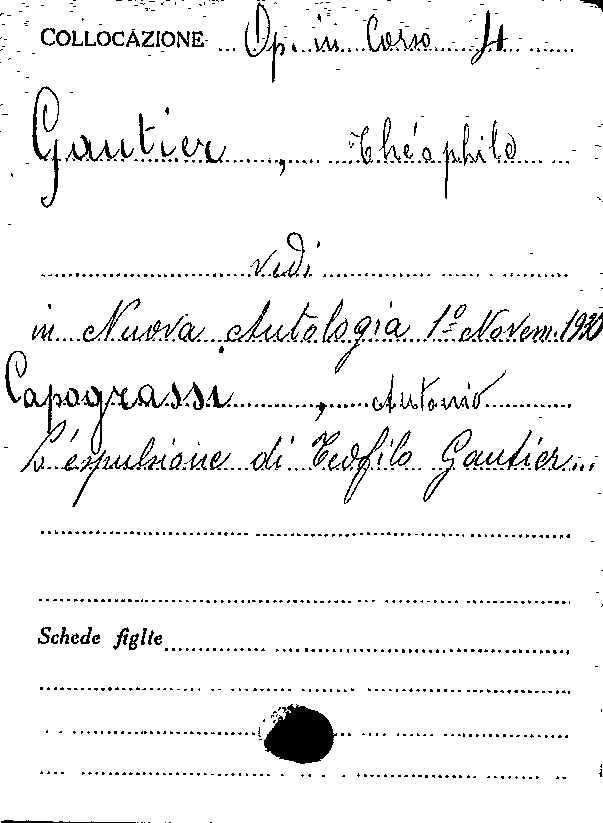 COLLOCAZIONE Op. in Corso 4
Gautier, Théophile
vedi
in Nuova Antologia 1º Novem. 1930
Capograssi, Antonio
L'espulsione di Teofilo Gautier...
Schede figlie